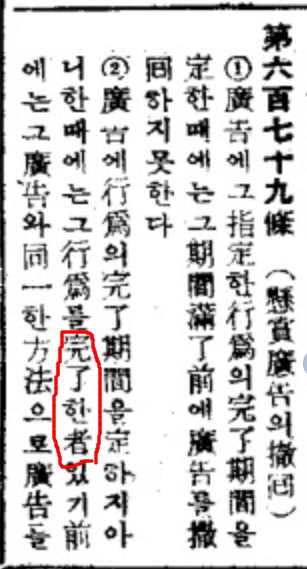 第六百七十九條 (懸賞廣告의撤回)
①廣告에그指定한行爲의完了期間을
定한때에는그期間滿了前에廣告를撤
回하지못한다
②廣告에行爲의完了期間을定하지아
니한때에는그行爲를完了한者있기前
에는그廣告와同一한方法으로廣告를